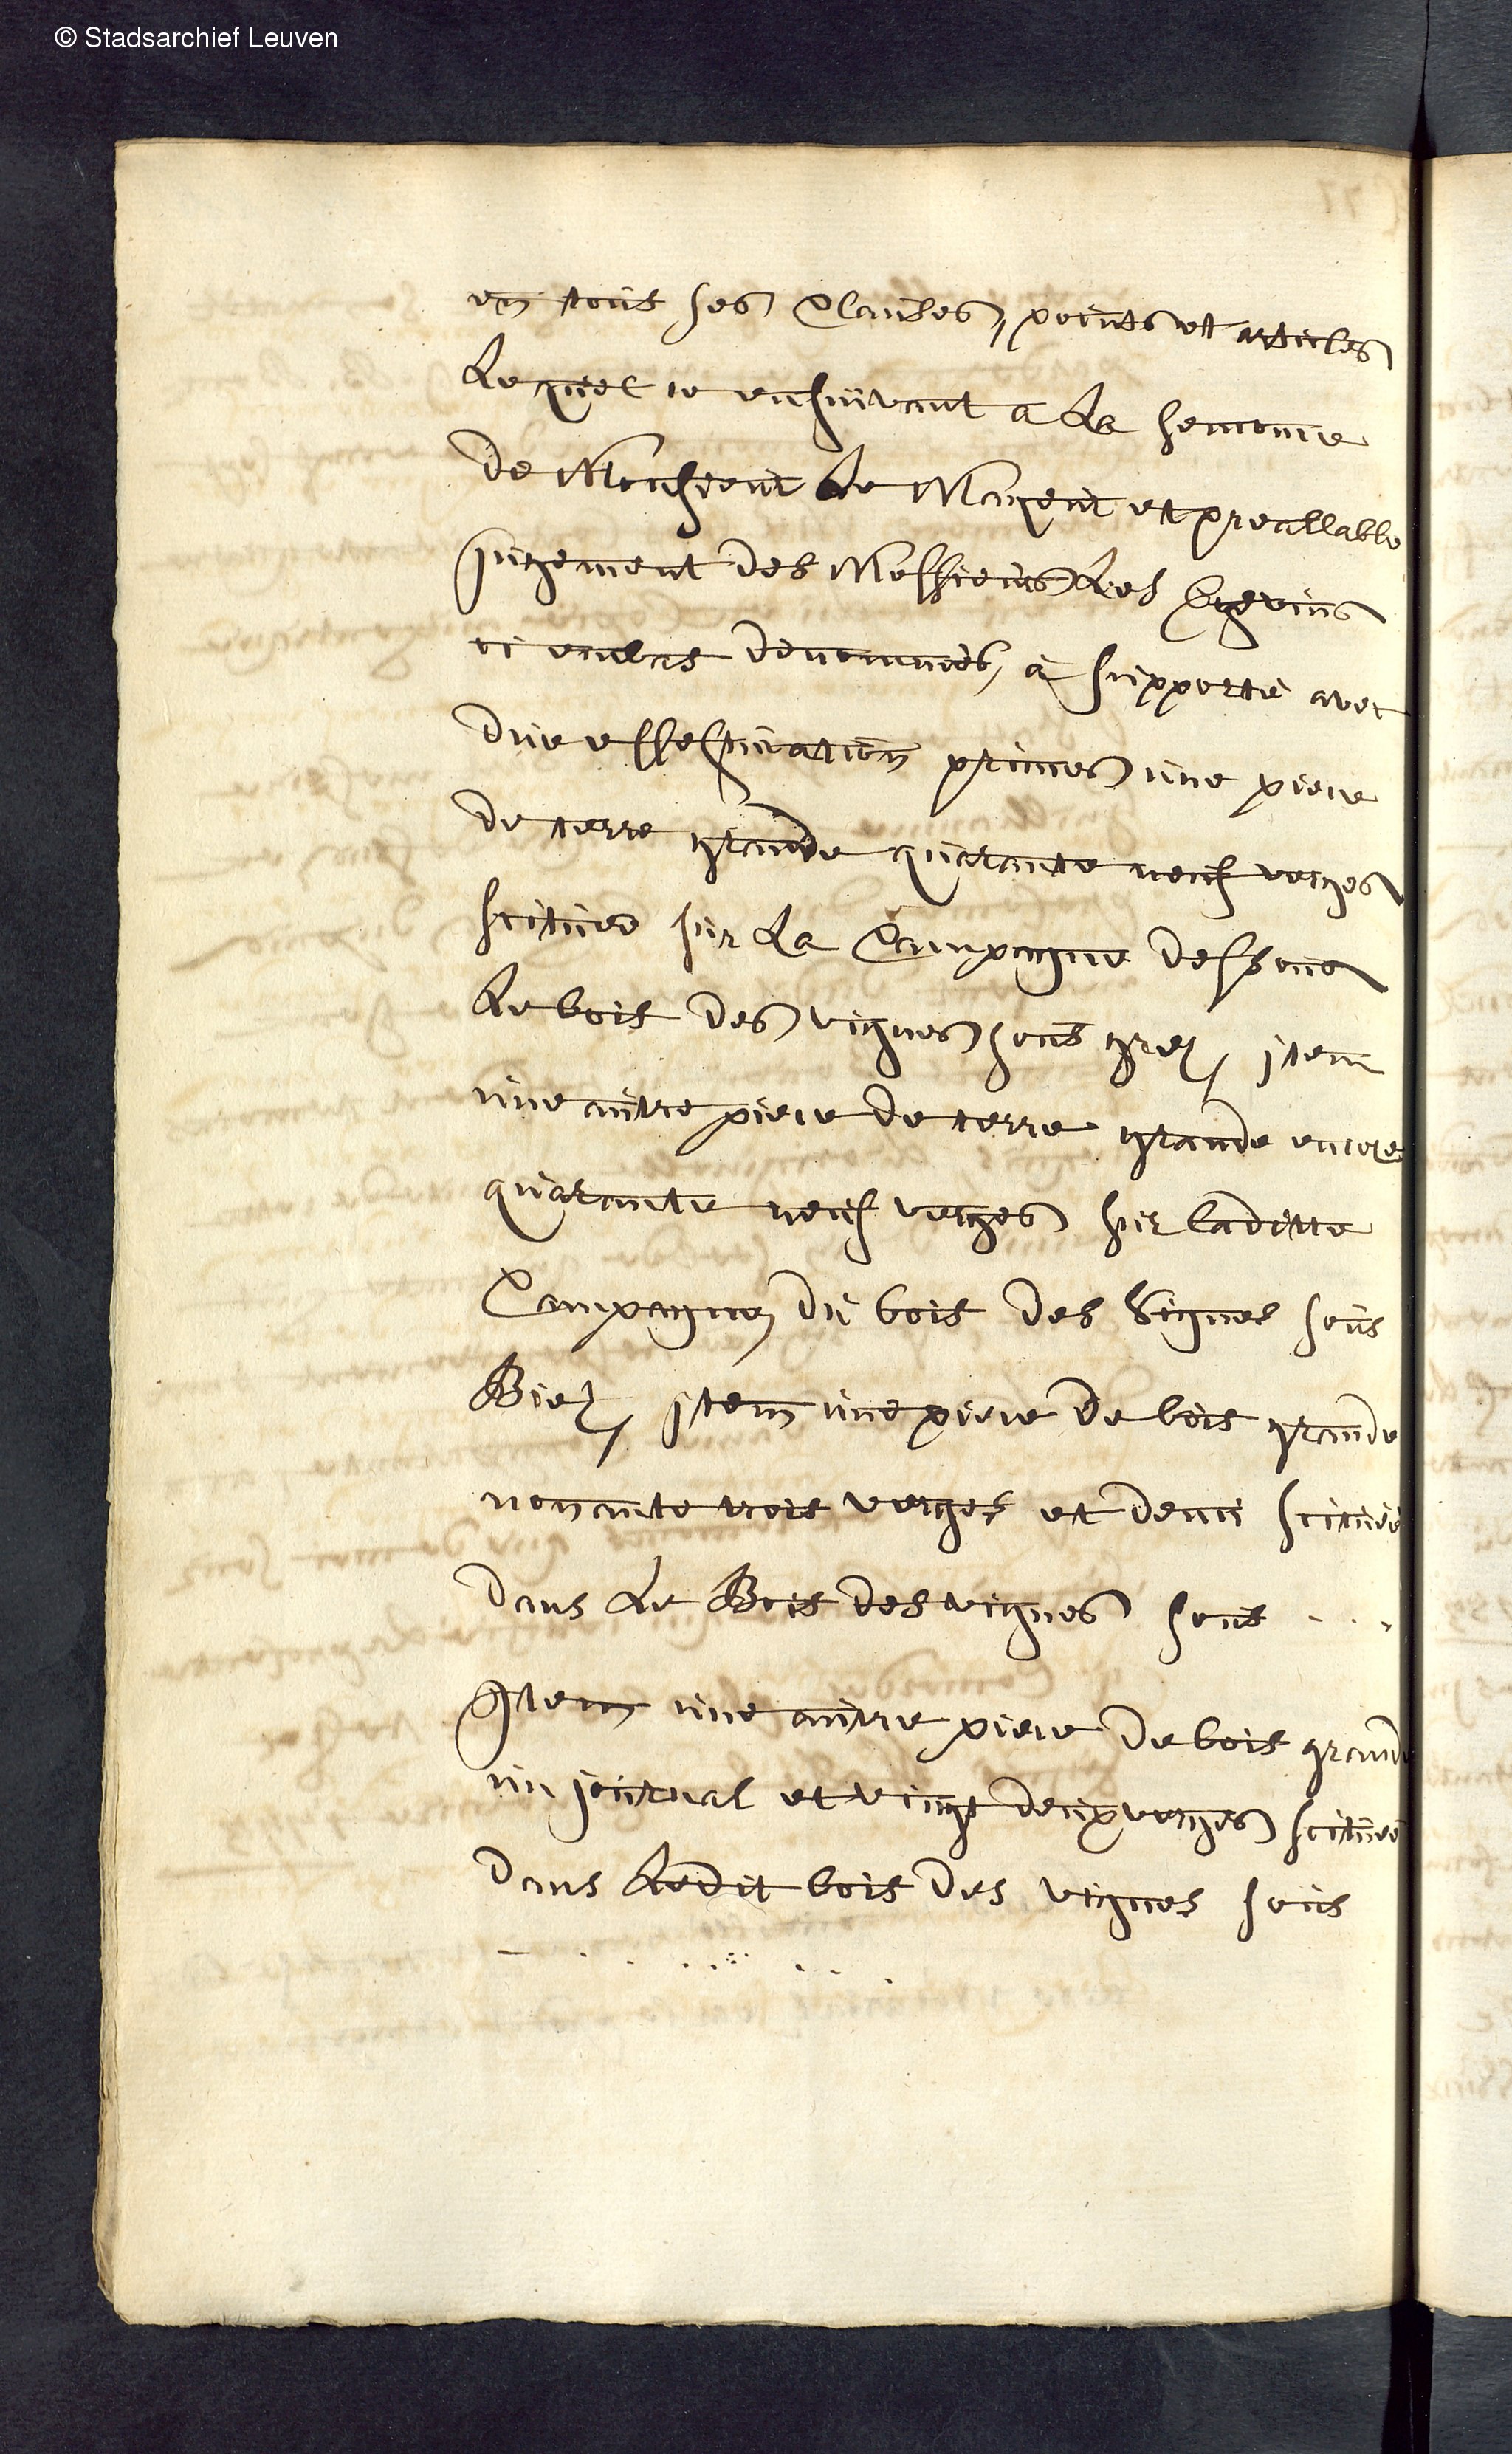 © Stadsarchief Leuven
en tous ses Clauses, points et articles
Lequel ce ensuivant a La semonce
de Monsieur Le Mayeur et preallable
jugement des Messieurs Les Eschevins
ci embas denommés, a supporté avec
due effestucation primes une piece
de terre grande quarante neuf verges
scituée sur La Campagne dessous
Le bois des vignes sous grez, item
une autre piece de terre grande encore
quarante neuf verges sur laditte
Campagne du bois des Vignes sous
Biez, item une piece de bois grande
nonante trois verges et demi scituée
dans Le Bois des vignes sous . . .
Item une autre piece de bois grande
un journal et vingt deux verges scituée
dans Ledit bois des vignes sous